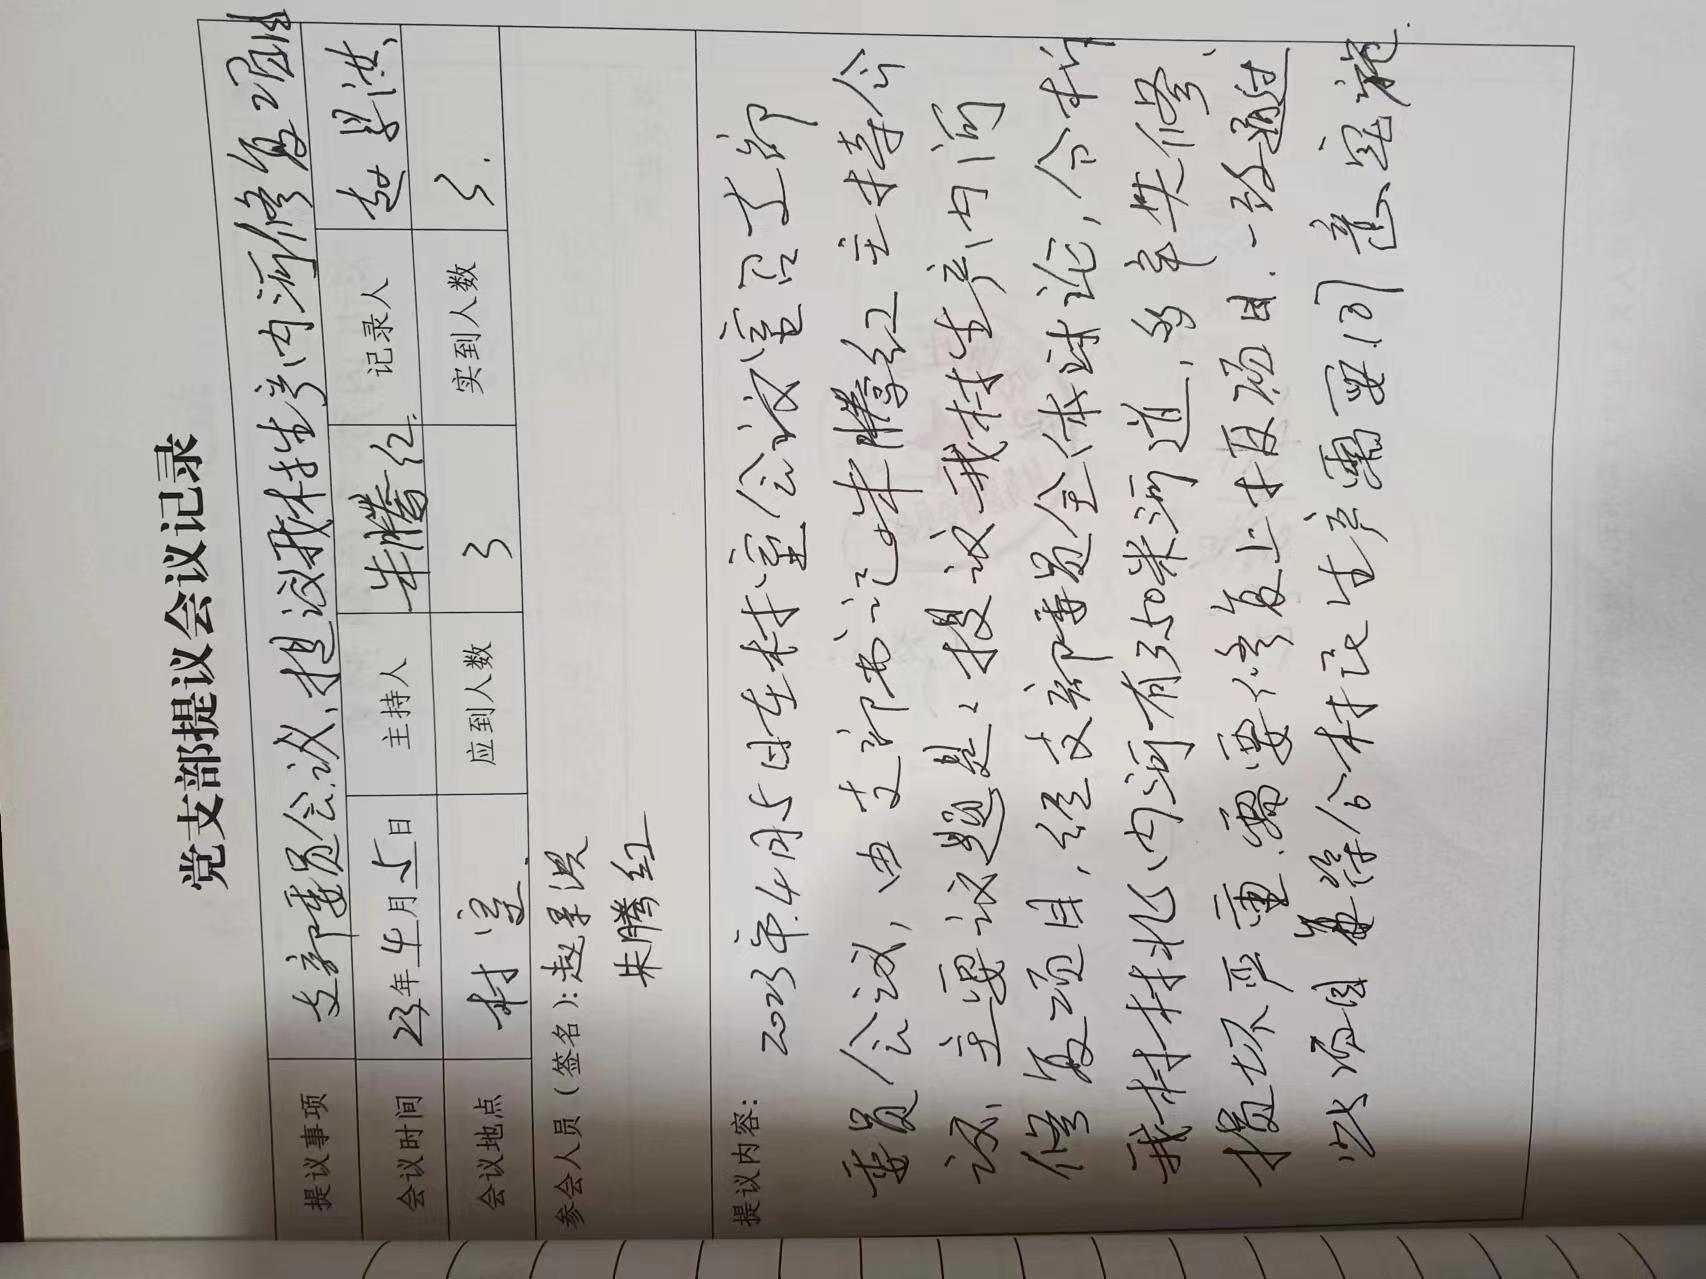 党支部提议会议记录
提议事项 支部委员会议，提议我村生产内河修复项目
会议时间 23年4月5日 主持人 朱腾红 记录人 赵景洪
会议地点 村室 应到人数 3 实到人数 3
参会人员（签名）：赵景洪
朱腾红
提议内容： 2023年4月5日在村室会议室召开支部
委员会议，由支部书记朱腾红主持会
议，主要议题是：提议我村生产内河
修复项目，经支部委员全体讨论，
我村村北内河有350米河道，多年失修，
损坏严重，需要修复上报项目。一致通过
以项目符合村民生产需要，同意实施.